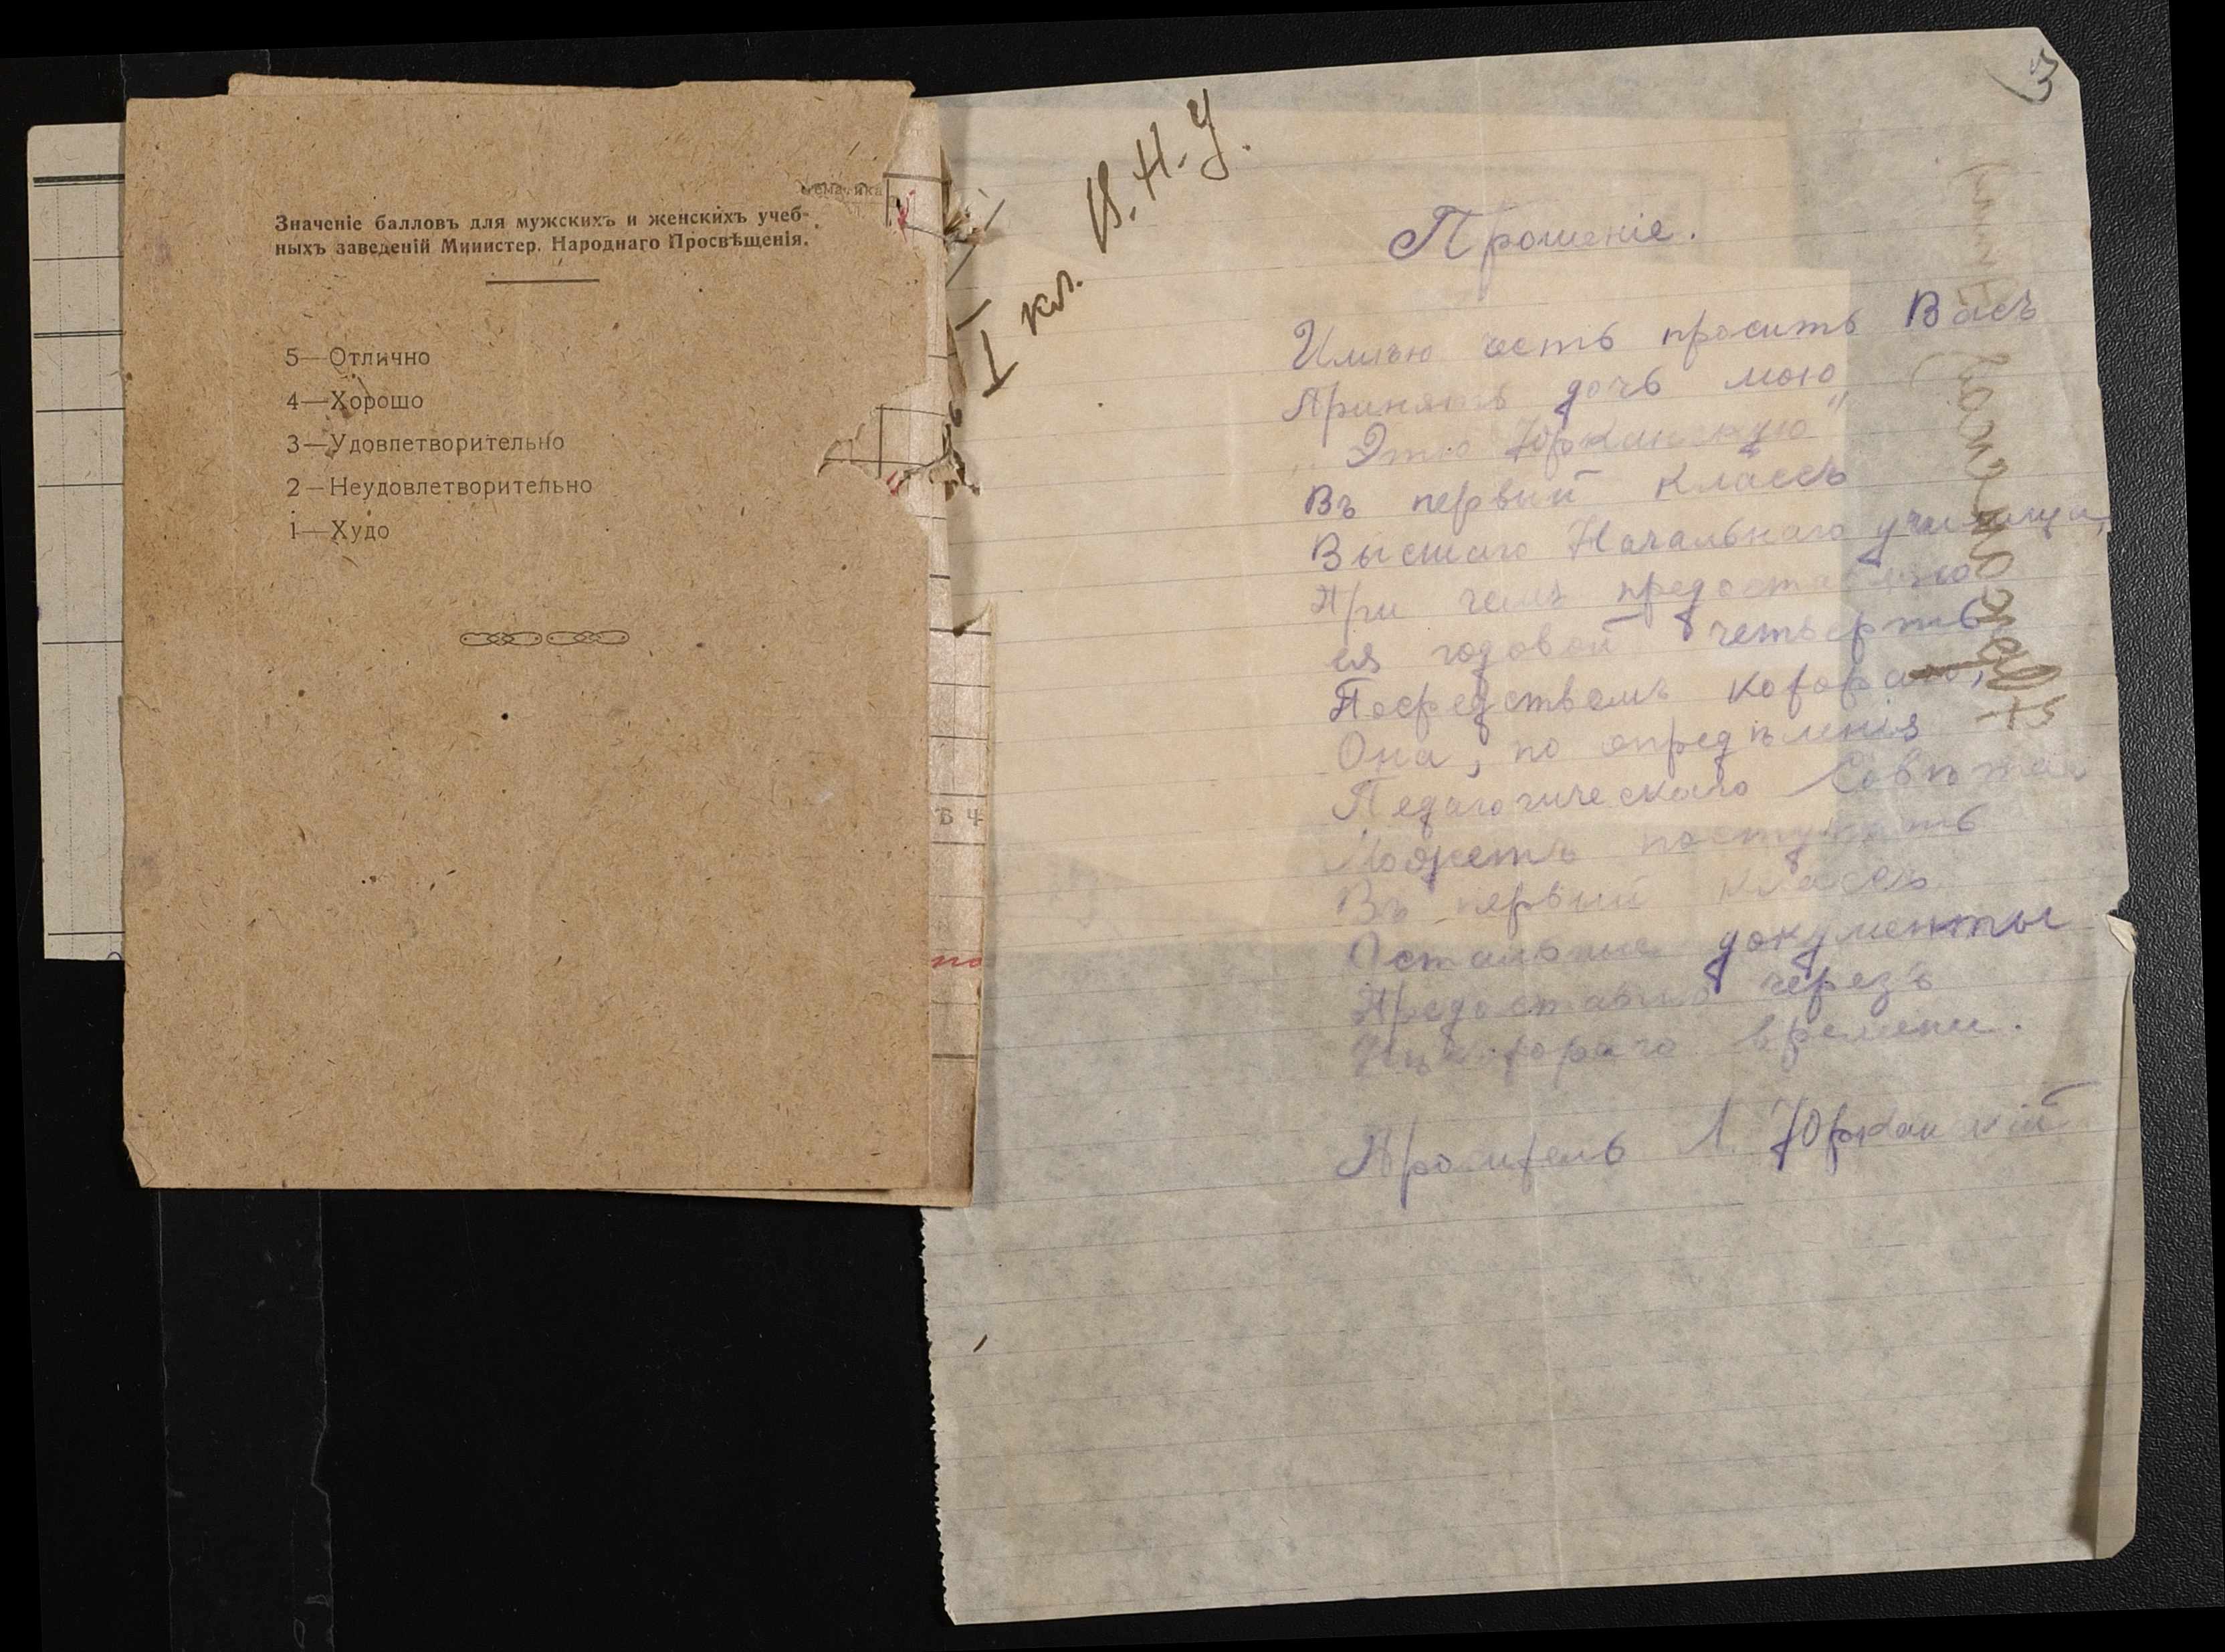 Значеніе балловъ для мужскихъ и женскихъ учеб-
ныхъ заведеній Министер. Народнаго Просвѣщенія.
5—Отлично
4—Хорошо
3—Удовлетворительно
2—Неудовлетворительно
1—Худо
Ь Ч
но
3
I кл. В. Н. У.
Прошеніе.
Имѣю честь просить Васъ
Принять дочь мою
„Этю Юрканскую“
Въ первый классъ
Высшаго Начальнаго училища,
При чемъ предоставляю
ея годовой четверть
Посредствомъ котораго,
Она, по опредѣленія
Педагогическаго Совѣта
Можетъ поступить
Въ первый классъ
Остальные документы
Предоставлю черезъ
Нѣкотораго времени.
Проситель Л. Юрканскій